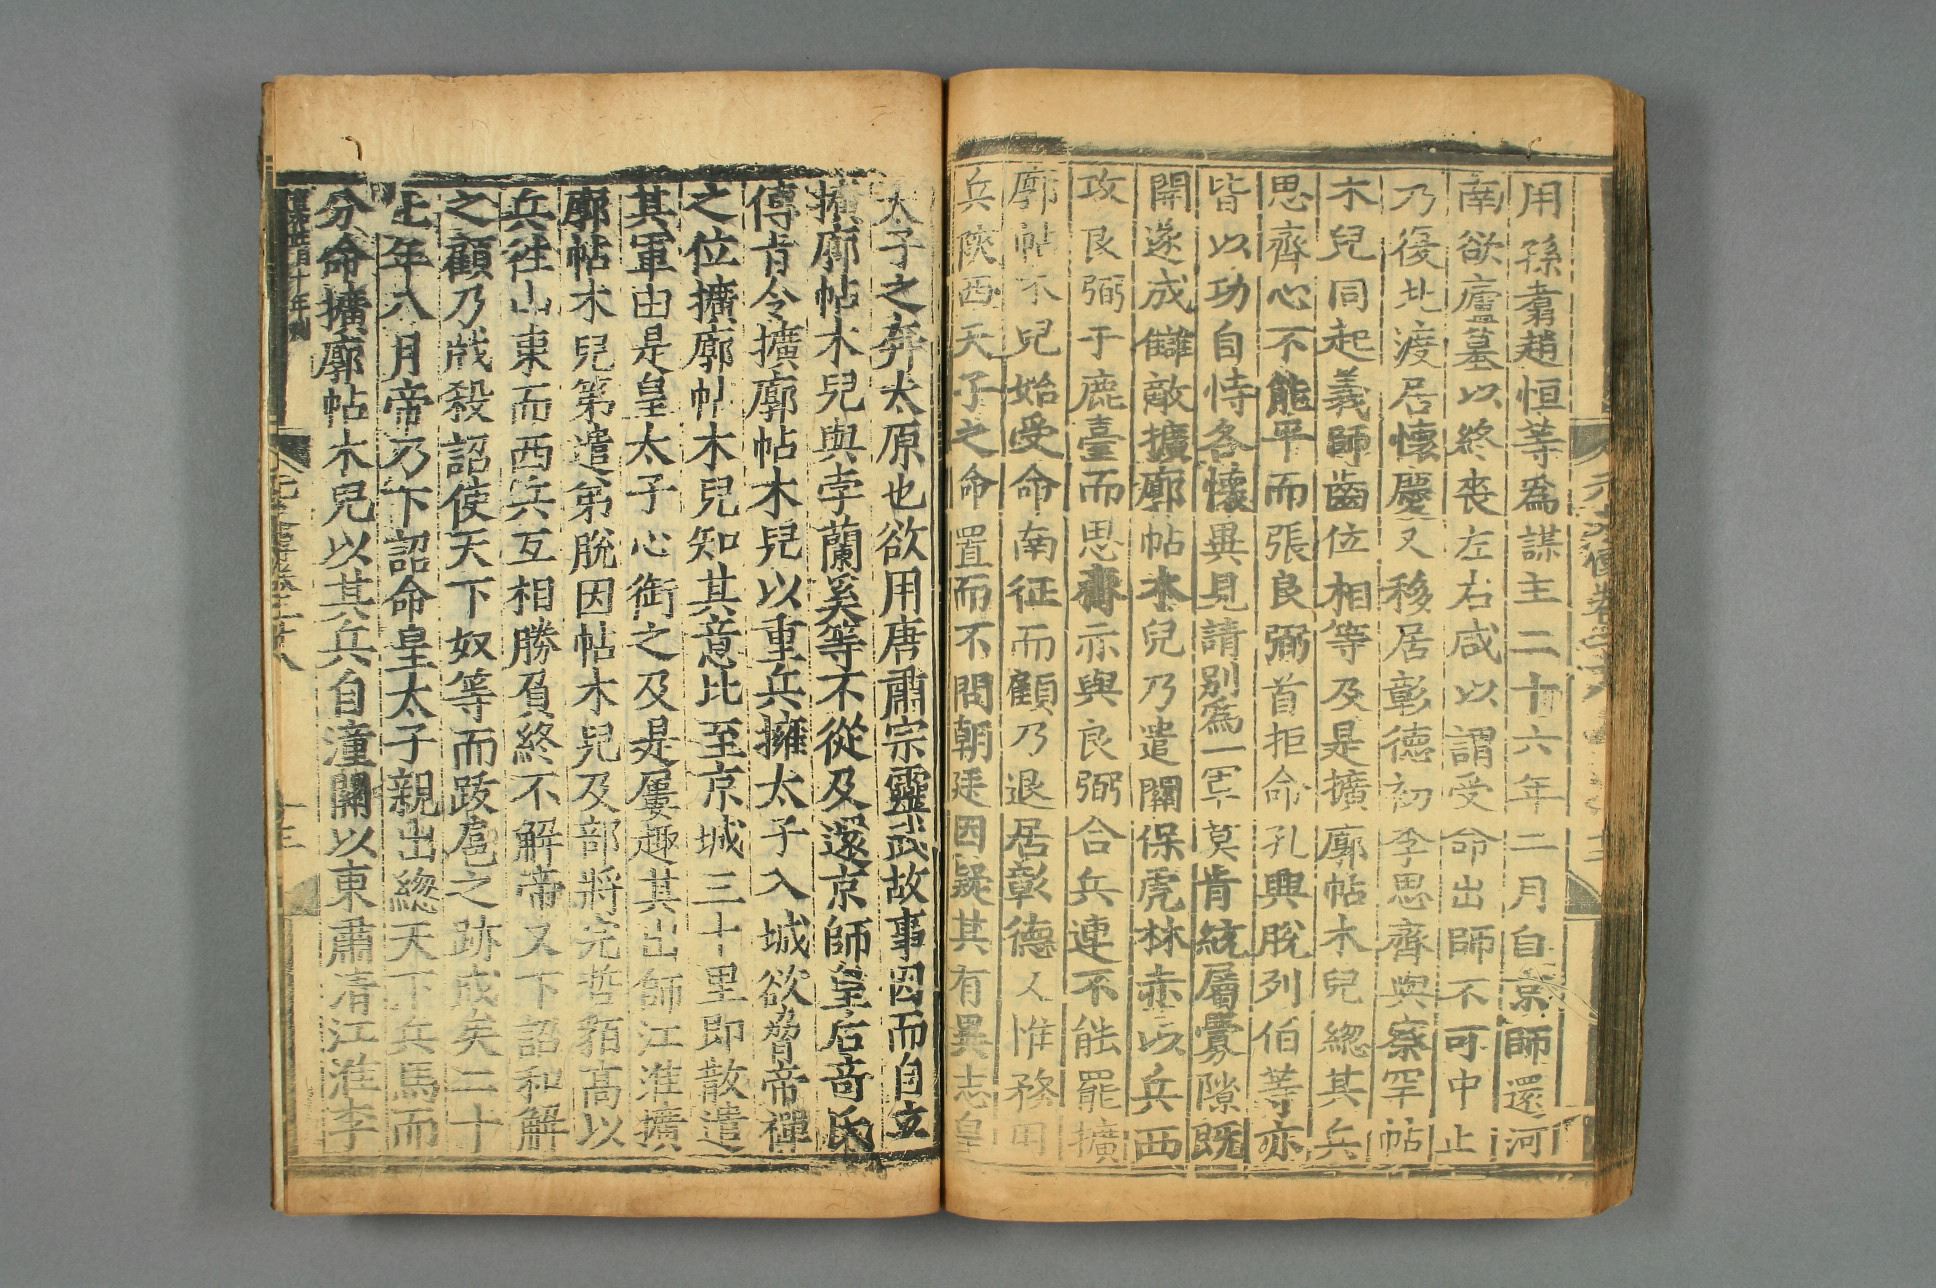 用孫翥趙恒等為謀主二十六年二月自京師還河
南欲廬墓以終喪左右咸以謂受命出師不可中止
乃復北渡居懷慶又移居彰德初李思齊與察罕帖
木兒同起義師齒位相等及是擴廓帖木兒總其兵
思齊心不能平而張良弼首拒命孔興脫列伯等亦
皆以功自恃各懷異見請別為一軍莫肯統屬釁隙既
開遂成讎敵擴廓帖木兒乃遣關保虎林赤以兵西
攻良弼于鹿臺而思齊亦與良弼合兵連不能罷擴
廓帖木兒始受命南征而顧乃退居彰德又惟務用
兵陝西天子之命置而不問朝廷因疑其有異志皇
太子之奔太原也欲用唐肅宗靈武故事因而自立
擴廓帖木兒與孛蘭奚等不從及還京師皇后奇氏
傳旨令擴廓帖木兒以重兵擁太子入城欲脅帝禪
之位擴廓帖木兒知其意比至京城三十里即散遣
其軍由是皇太子心銜之及是屢趣其出師江淮擴
廓帖木兒第遣弟脫因帖木兒及部將完哲貊高以
兵往山東而西兵互相勝負終不解帝又下詔和解
之顧乃戕殺詔使天下奴等而跋扈之跡成矣二十
七年八月帝乃下詔命皇太子親出總天下兵馬而
分命擴廓帖木兒以其兵自潼關以東肅清江淮李